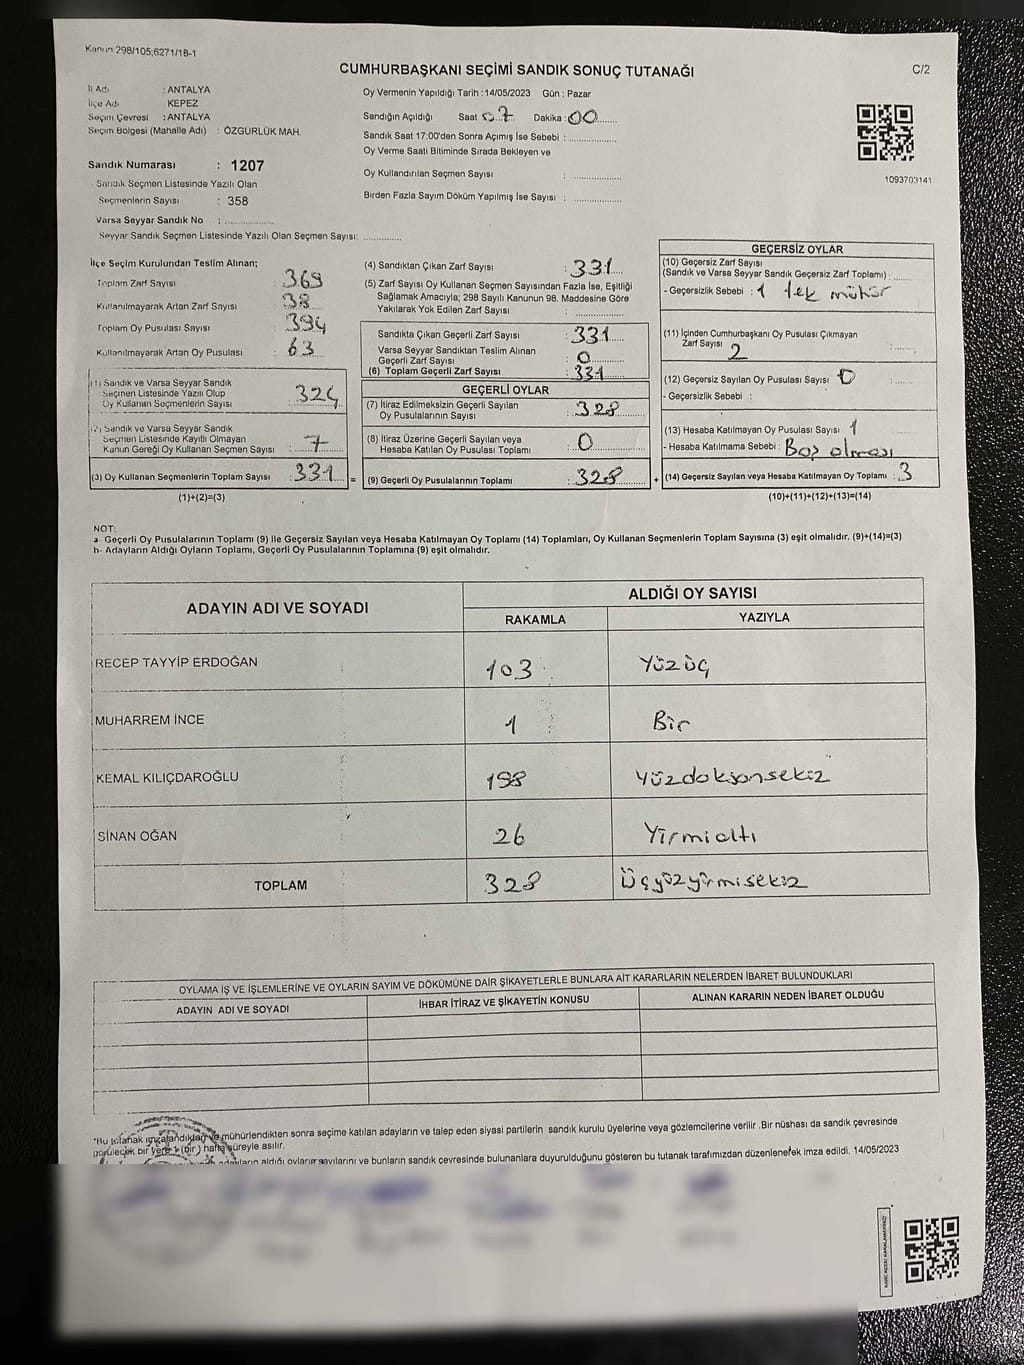 Kanun 298/105;6271/18-1
CUMHURBAŞKANI SEÇİMİ SANDIK SONUÇ TUTANAĞI
C/2
İl Adı : ANTALYA
İlçe Adı : KEPEZ
Seçim Çevresi : ANTALYA
Seçim Bölgesi (Mahalle Adı) : ÖZGÜRLÜK MAH.
Sandık Numarası : 1207
Sandık Seçmen Listesinde Yazılı Olan
Seçmenlerin Sayısı : 358
Varsa Seyyar Sandık No :
Seyyar Sandık Seçmen Listesinde Yazılı Olan Seçmen Sayısı:
Oy Vermenin Yapıldığı Tarih :14/05/2023 Gün : Pazar
Sandığın Açıldığı Saat 07 Dakika : 00
Sandık Saat 17:00'den Sonra Açımış İse Sebebi :
Oy Verme Saati Bitiminde Sırada Bekleyen ve
Oy Kullandırılan Seçmen Sayısı :
Birden Fazla Sayım Döküm Yapılmış İse Sayısı :
1093703141
İlçe Seçim Kurulundan Teslim Alınan;
Toplam Zarf Sayısı : 369
Kullanılmayarak Artan Zarf Sayısı : 38
Toplam Oy Pusulası Sayısı : 394
Kullanılmayarak Artan Oy Pusulası : 63
(1) Sandık ve Varsa Seyyar Sandık
Seçmen Listesinde Yazılı Olup
Oy Kullanan Seçmenlerin Sayısı : 324
(2) Sandık ve Varsa Seyyar Sandık
Seçmen Listesinde Kayıtlı Olmayan
Kanun Gereği Oy Kullanan Seçmen Sayısı : 7
(3) Oy Kullanan Seçmenlerin Toplam Sayısı : 331 =
(1)+(2)=(3)
(4) Sandıktan Çıkan Zarf Sayısı : 331
(5) Zarf Sayısı Oy Kullanan Seçmen Sayısından Fazla İse, Eşitliği
Sağlamak Amacıyla; 298 Sayılı Kanunun 98. Maddesine Göre
Yakılarak Yok Edilen Zarf Sayısı :
Sandıkta Çıkan Geçerli Zarf Sayısı : 331
Varsa Seyyar Sandıktan Teslim Alınan
Geçerli Zarf Sayısı : 0
(6) Toplam Geçerli Zarf Sayısı : 331
GEÇERLİ OYLAR
(7) İtiraz Edilmeksizin Geçerli Sayılan
Oy Pusulalarının Sayısı : 328
(8) İtiraz Üzerine Geçerli Sayılan veya
Hesaba Katılan Oy Pusulası Toplamı : 0
(9) Geçerli Oy Pusulalarının Toplamı : 328 +
GEÇERSİZ OYLAR
(10) Geçersiz Zarf Sayısı
(Sandık ve Varsa Seyyar Sandık Geçersiz Zarf Toplamı) :
- Geçersizlik Sebebi : 1 tek mühür
(11) İçinden Cumhurbaşkanı Oy Pusulası Çıkmayan
Zarf Sayısı 2 :
(12) Geçersiz Sayılan Oy Pusulası Sayısı : 0
- Geçersizlik Sebebi :
(13) Hesaba Katılmayan Oy Pusulası Sayısı : 1
- Hesaba Katılmama Sebebi : Boş olması
(14) Geçersiz Sayılan veya Hesaba Katılmayan Oy Toplamı : 3
(10)+(11)+(12)+(13)=(14)
NOT:
a- Geçerli Oy Pusulalarının Toplamı (9) İle Geçersiz Sayılan veya Hesaba Katılmayan Oy Toplamı (14) Toplamları, Oy Kullanan Seçmenlerin Toplam Sayısına (3) eşit olmalıdır. (9)+(14)=(3)
b- Adayların Aldığı Oyların Toplamı, Geçerli Oy Pusulalarının Toplamına (9) eşit olmalıdır.
ADAYIN ADI VE SOYADI
ALDIĞI OY SAYISI
RAKAMLA YAZIYLA
RECEP TAYYİP ERDOĞAN 103 Yüzüç
MUHARREM İNCE 1 Bir
KEMAL KILIÇDAROĞLU 198 Yüzdoksansekiz
SİNAN OĞAN 26 Yirmialtı
TOPLAM 328 Üçyüzyirmisekiz
OYLAMA İŞ VE İŞLEMLERİNE VE OYLARIN SAYIM VE DÖKÜMÜNE DAİR ŞİKAYETLERLE BUNLARA AİT KARARLARIN NELERDEN İBARET BULUNDUKLARI
ADAYIN ADI VE SOYADI İHBAR İTİRAZ VE ŞİKAYETİN KONUSU ALINAN KARARIN NEDEN İBARET OLDUĞU
"Bu tutanak imzalandıktan ve mühürlendikten sonra seçime katılan adayların ve talep eden siyasi partilerin sandık kurulu üyelerine veya gözlemcilerine verilir .Bir nüshası da sandık çevresinde
görülecek bir yere 1 (bir) hafta süreyle asılır.
adayların aldığı oyların sayılarını ve bunların sandık çevresinde bulunanlara duyurulduğunu gösteren bu tutanak tarafımızdan düzenlenerek imza edildi. 14/05/2023